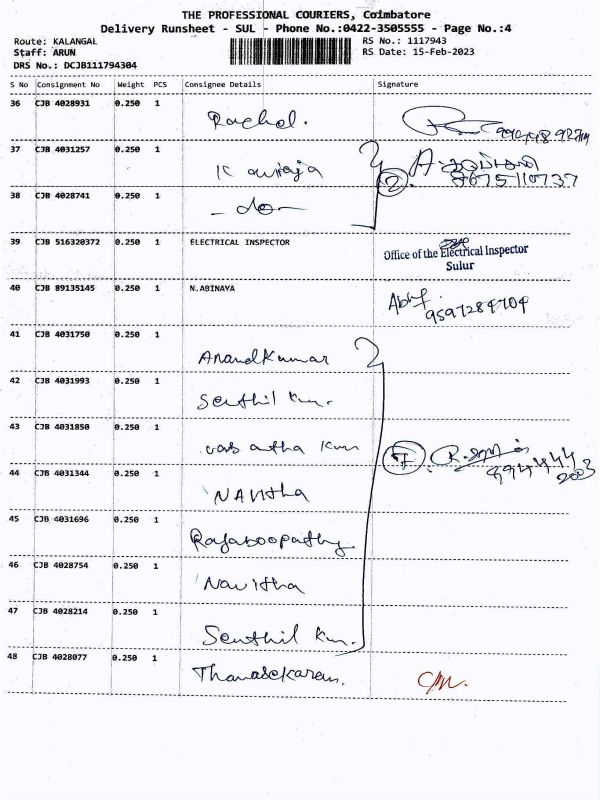 THE PROFESSIONAL COURIERS, Coimbatore
Delivery Runsheet - SUL - Phone No.:0422-3505555 - Page No.:4
Route: KALANGAL
RS No.: 1117943
Staff: ARUN
RS Date: 15-Feb-2023
DRS No.: DCJB111794304
S No Consignment No Weight PCS Consignee Details Signature
36 CJB 4028931 0.250 1 Rachel.
37 CJB 4031257 0.250 1 K
2 8675110737
38 CJB 4028741 0.250 1 - do -
39 CJB 516320372 0.250 1 ELECTRICAL INSPECTOR
Office of the Electrical Inspector
Sulur
40 CJB 89135145 0.250 1 N.ABINAYA
Abi 9597284704
41 CJB 4031750 0.250 1 AnandKumar
42 CJB 4031993 0.250 1 Senthil Km.
43 CJB 4031850 0.250 1 vasantha Km
7
44 CJB 4031344 0.250 1 NAvitha
45 CJB 4031696 0.250 1 Rajaboopathy
46 CJB 4028754 0.250 1 Navitha
47 CJB 4028214 0.250 1 Senthil Km.
48 CJB 4028077 0.250 1 Thanasekaran.